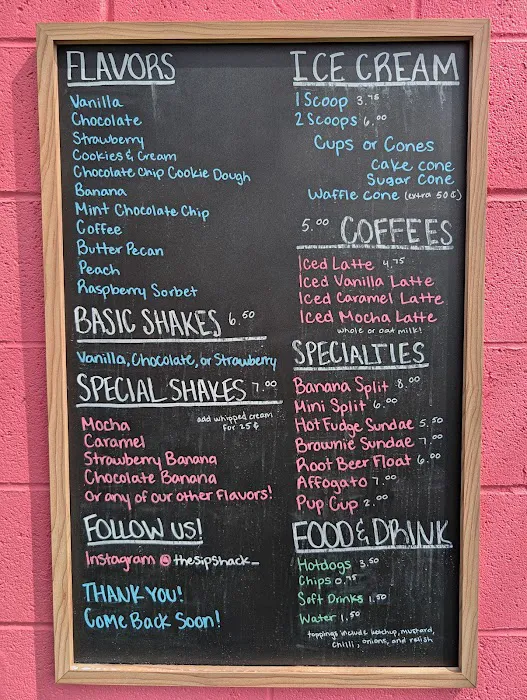 FLAVORS
Vanilla
Chocolate
Strawberry
Cookies & Cream
Chocolate Chip Cookie Dough
Banana
Mint Chocolate Chip
Coffee
Butter Pecan
Peach
Raspberry Sorbet
BASIC SHAKES 6.50
Vanilla, Chocolate, or Strawberry
SPECIAL SHAKES 7.00
add whipped cream
for 25¢
Mocha
Caramel
Strawberry Banana
Chocolate Banana
or any of our other flavors!
FOLLOW US!
Instagram @thesipshack_
THANK YOU!
Come Back Soon!
ICE CREAM
1 Scoop 3.75
2 Scoops 6.00
Cups or Cones
Cake cone
Sugar Cone
Waffle Cone (extra 50¢)
5.00 COFFEES
Iced Latte 4.75
Iced Vanilla Latte
Iced Caramel Latte
Iced Mocha Latte
whole or oat milk!
SPECIALTIES
Banana Split 8.00
Mini Split 6.00
Hot Fudge Sundae 5.50
Brownie Sundae 7.00
Root Beer Float 6.00
Affogato 7.00
Pup Cup 2.00
FOOD & DRINK
Hotdogs 3.50
Chips 0.75
Soft Drinks 1.50
Water 1.50
toppings include ketchup, mustard,
chilli, onions, and relish